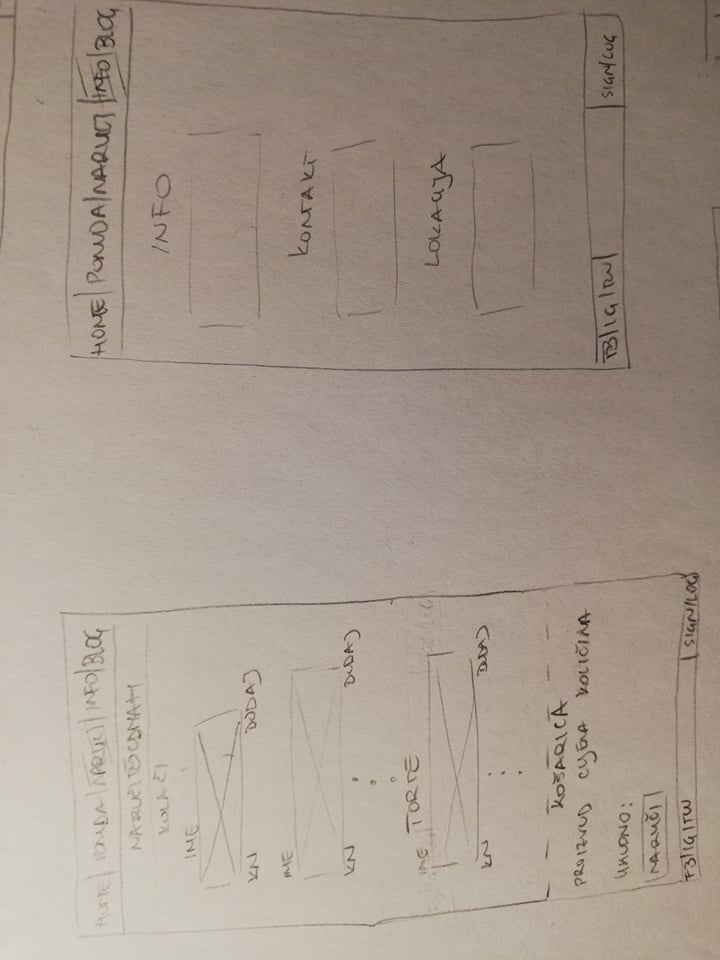 HOME | PONUDA | NARUČI | INFO | BLOG
NARUČITE ODMAH
KOLAČI
IME
KN DODAJ
IME
KN DODAJ
TORTE
IME
KN DODAJ
KOŠARICA
PROIZVOD CIJENA KOLIČINA
UKUPNO:
NARUČI
FB/IG/TW | SIGN/LOG
HOME | PONUDA | NARUČI | INFO | BLOG
INFO
KONTAKT
LOKACIJA
FB/IG/TW | SIGN/LOG